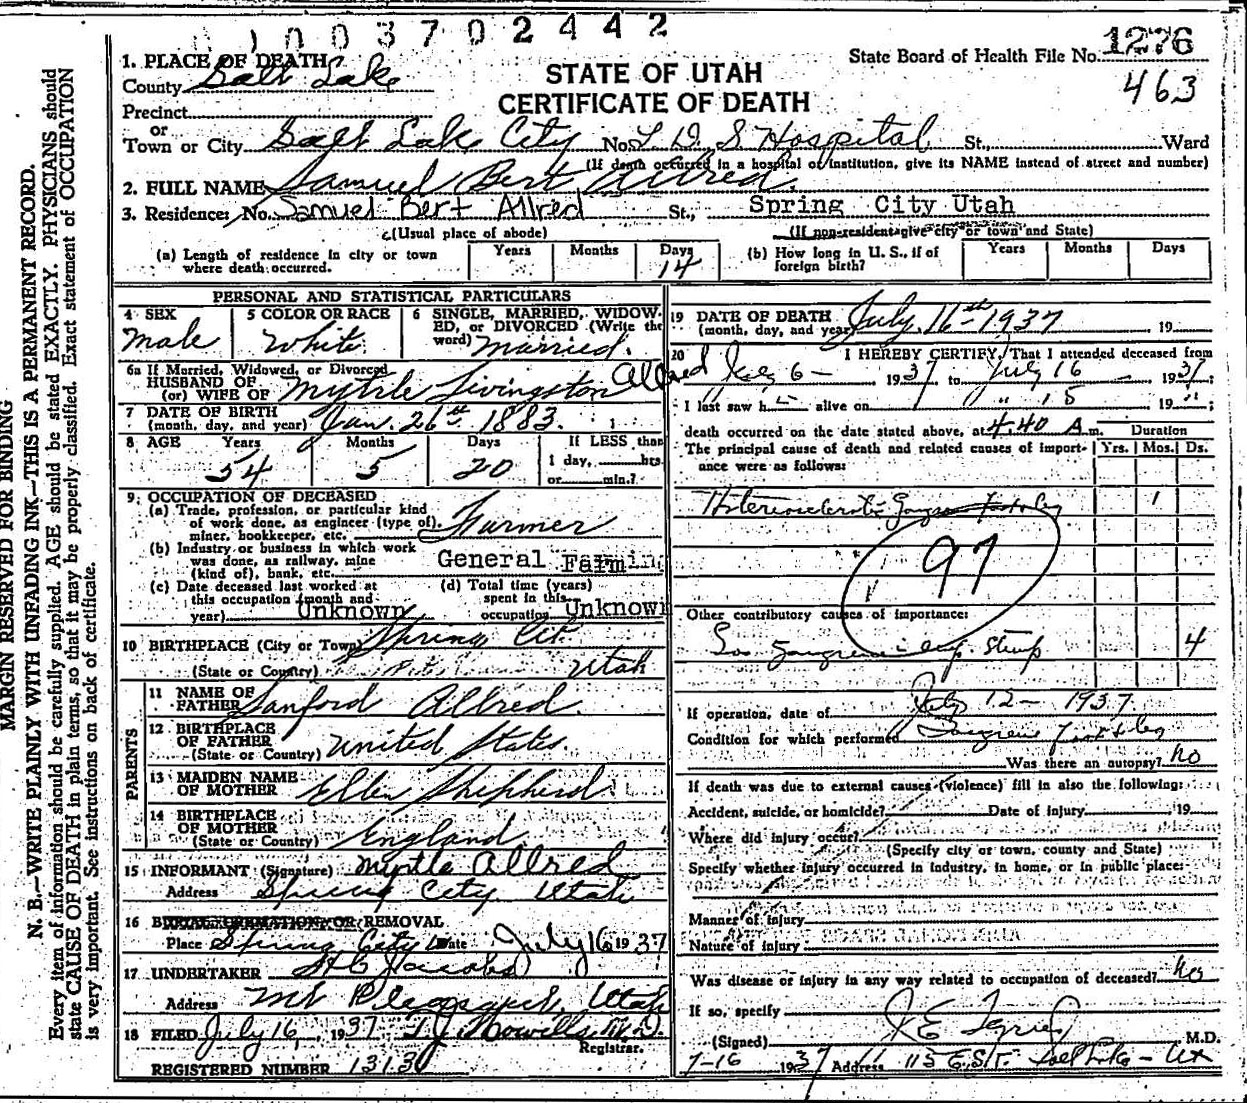 1003702442
1. PLACE OF DEATH
County Salt Lake
STATE OF UTAH
CERTIFICATE OF DEATH
State Board of Health File No. 1276
463
Precinct
or
Town or City Salt Lake City No. L. D. S Hospital St., Ward
(If death occurred in a hospital or institution, give its NAME instead of street and number)
2. FULL NAME Samuel Bert Allred.
3. Residence: No. Samuel Bert Allred St., Spring City Utah
(Usual place of abode) (If non-resident give city or town and State)
(a) Length of residence in city or town where death occurred. Years Months Days 14
(b) How long in U. S., if of foreign birth? Years Months Days
PERSONAL AND STATISTICAL PARTICULARS
4 SEX Male
5 COLOR OR RACE White
6 SINGLE, MARRIED, WIDOWED, or DIVORCED (Write the word) Married.
6a If Married, Widowed, or Divorced
HUSBAND OF
(or) WIFE OF Myrtle Livingston Allred
7 DATE OF BIRTH
(month, day, and year) Jan. 26th 1883.
8 AGE Years 54 Months 5 Days 20 If LESS than 1 day, hrs. or min.?
9. OCCUPATION OF DECEASED
(a) Trade, profession, or particular kind of work done, as engineer (type of) miner, bookkeeper, etc. Farmer
(b) Industry or business in which work was done, as railway, mine (kind of), bank, etc. General Farming
(c) Date deceased last worked at this occupation (month and year) Unknown
(d) Total time (years) spent in this occupation Unknown
10 BIRTHPLACE (City or Town) Spring City
(State or Country) Utah
PARENTS
11 NAME OF FATHER Sanford Allred.
12 BIRTHPLACE OF FATHER
(State or Country) United States.
13 MAIDEN NAME OF MOTHER Ellen Shepherd.
14 BIRTHPLACE OF MOTHER
(State or Country) England
15 INFORMANT (Signature) Myrtle Allred
Address Spring City Utah
16 BURIAL CREMATION OR REMOVAL
Place Spring City Date July 16 1937
17 UNDERTAKER Jacobs
Address Mt Pleasant, Utah
18 FILED July 16, 1937 T. J. Howells M.D.
Registrar.
REGISTERED NUMBER 1313
19 DATE OF DEATH
(month, day, and year) July, 16th 1937 19
20 I HEREBY CERTIFY, That I attended deceased from
July 6 - 1937 to July 16 1937;
I last saw h alive on " 15 19 ";
death occurred on the date stated above, at 4:40 A m.
The principal cause of death and related causes of importance were as follows:
Duration
Yrs. Mos. Ds.
1
97
Other contributory causes of importance:
Stump 4
If operation, date of July 12 - 1937
Condition for which performed Gangrene foot & leg
Was there an autopsy? no
If death was due to external causes (violence) fill in also the following:
Accident, suicide, or homicide? Date of injury 19
Where did injury occur?
(Specify city or town, county and State)
Specify whether injury occurred in industry, in home, or in public place:
Manner of injury
Nature of injury
Was disease or injury in any way related to occupation of deceased? no
If so, specify
(Signed) M.D.
7-16 1937 Address 115 E. S.T. Salt Lake - Ut
MARGIN RESERVED FOR BINDING
N. B.—WRITE PLAINLY WITH UNFADING INK—THIS IS A PERMANENT RECORD.
Every item of information should be carefully supplied. AGE should be stated EXACTLY. PHYSICIANS should
state CAUSE OF DEATH in plain terms, so that it may be properly classified. Exact statement of OCCUPATION
is very important. See instructions on back of certificate.